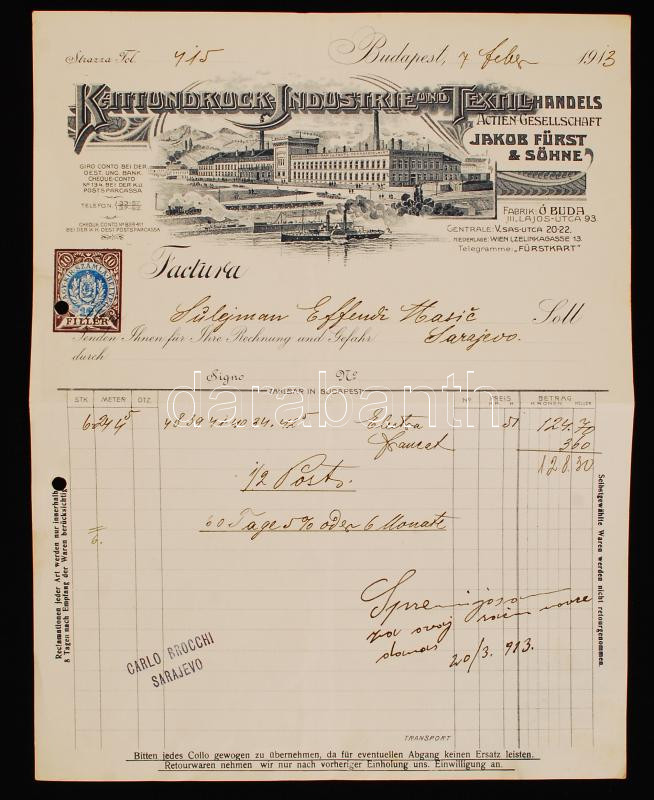 Strazza Fol. 415 Budapest, 7 feber 1913
KATTUNDRUCK-INDUSTRIE UND TEXTIL-HANDELS
ACTIEN GESELLSCHAFT
JAKOB FÜRST
& SÖHNE
GIRO CONTO BEI DER
OEST. UNG. BANK.
CHEQUE-CONTO
No 134 BEI DER K.U.
POSTSPARCASSA
TELEFON
CHEQUE CONTO No
BEI DER K.K. OEST. POSTSPARCASSA
FABRIK: Ó BUDA
III, LAJOS-UTCA 93.
CENTRALE: V. SAS-UTCA 20-22.
NIEDERLAGE: WIEN I, ZELINKAGASSE 13.
Telegramme: „FÜRSTKART"
10 10
FILLÉR
Factura
Sulejman Effendi Hasić Soll
Senden Ihnen für Ihre Rechnung und Gefahr Sarajevo.
durch
Signo No
ZAHLBAR IN BUDAPEST
STK METER DTZ. No PREIS BETRAG
K. H. KRONEN HELLER
6 244⁵ 43 39 41 40 34. 42⁵ Electra 51 124.70
3 60
128.30
1/2 Post.
60 Tage 5% oder 6 Monate
6.
za ovaj račun novce
danas 20/3. 913.
CARLO BROCCHI
SARAJEVO
Reclamationen jeder Art werden nur innerhalb
8 Tagen nach Empfang der Waren berücksichtigt
Selbstgewählte Waren werden nicht retourgenommen.
TRANSPORT
Bitten jedes Collo gewogen zu übernehmen, da für eventuellen Abgang keinen Ersatz leisten.
Retourwaren nehmen wir nur nach vorheriger Einholung uns. Einwilligung an.
darabanth